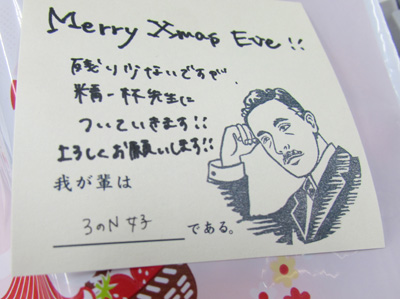 Merry Xmas Eve!!
残り少ないですが、
精一杯先生に
ついていきます!!
よろしくお願いします!!
我が輩は
3のN女子
である。